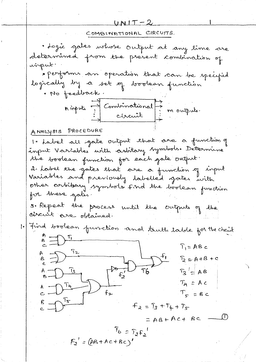 UNIT-2
1
COMBINATIONAL CIRCUITS.
• Logic gates whose output at any time are
determined from the present combination of
input.
• performs an operation that can be specified
logically by a set of boolean function
• No feedback.
n input Combinational m outputs.
circuit
ANALYSIS PROCEDURE
1. Label all gate output that are a function of
input variables with arbitary symbols. Determine
the boolean function for each gate output.
2. Label the gates that are a function of input
variables and previously labelled gates with
other arbitary symbols find the boolean function
for these gates.
3. Repeat the process until the outputs of the
circuit are obtained.
1. Find boolean function and truth table for the circuit
T1 = ABC
T2 = A+B+C
T3 = AB
T4 = AC
T5 = BC
f2 = T3 + T4 + T5
= AB + AC + BC
T6 = T2 F2'
F2' = (AB+AC+BC)'